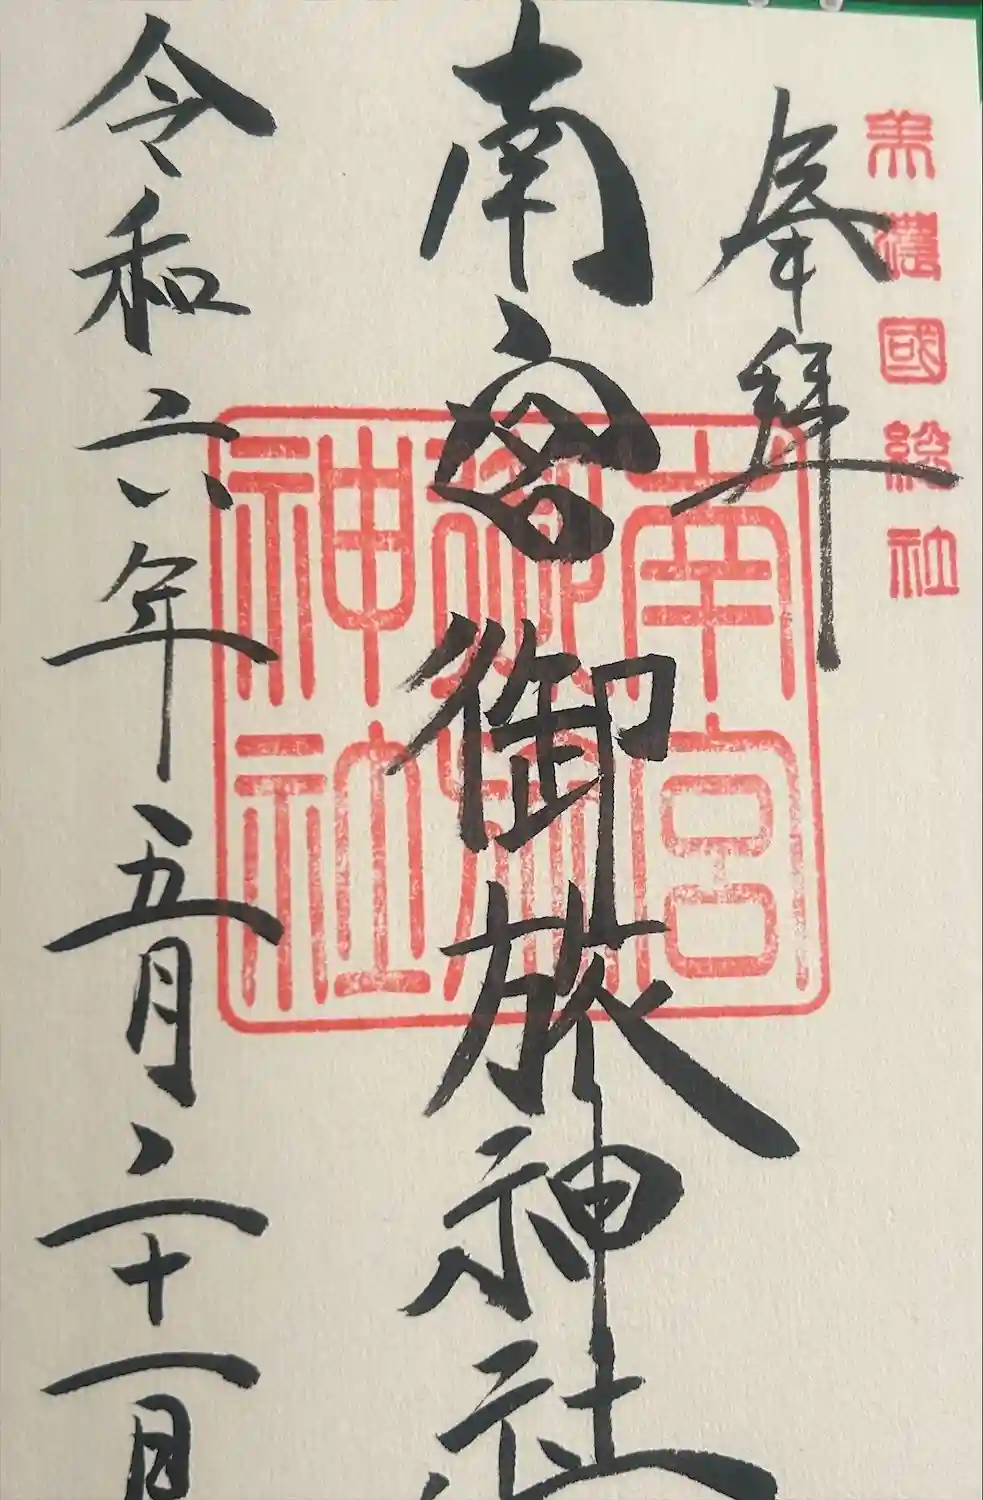 美濃國総社
奉拝
南宮御旅神社
南宮
御旅
神社
令和六年五月二十一日